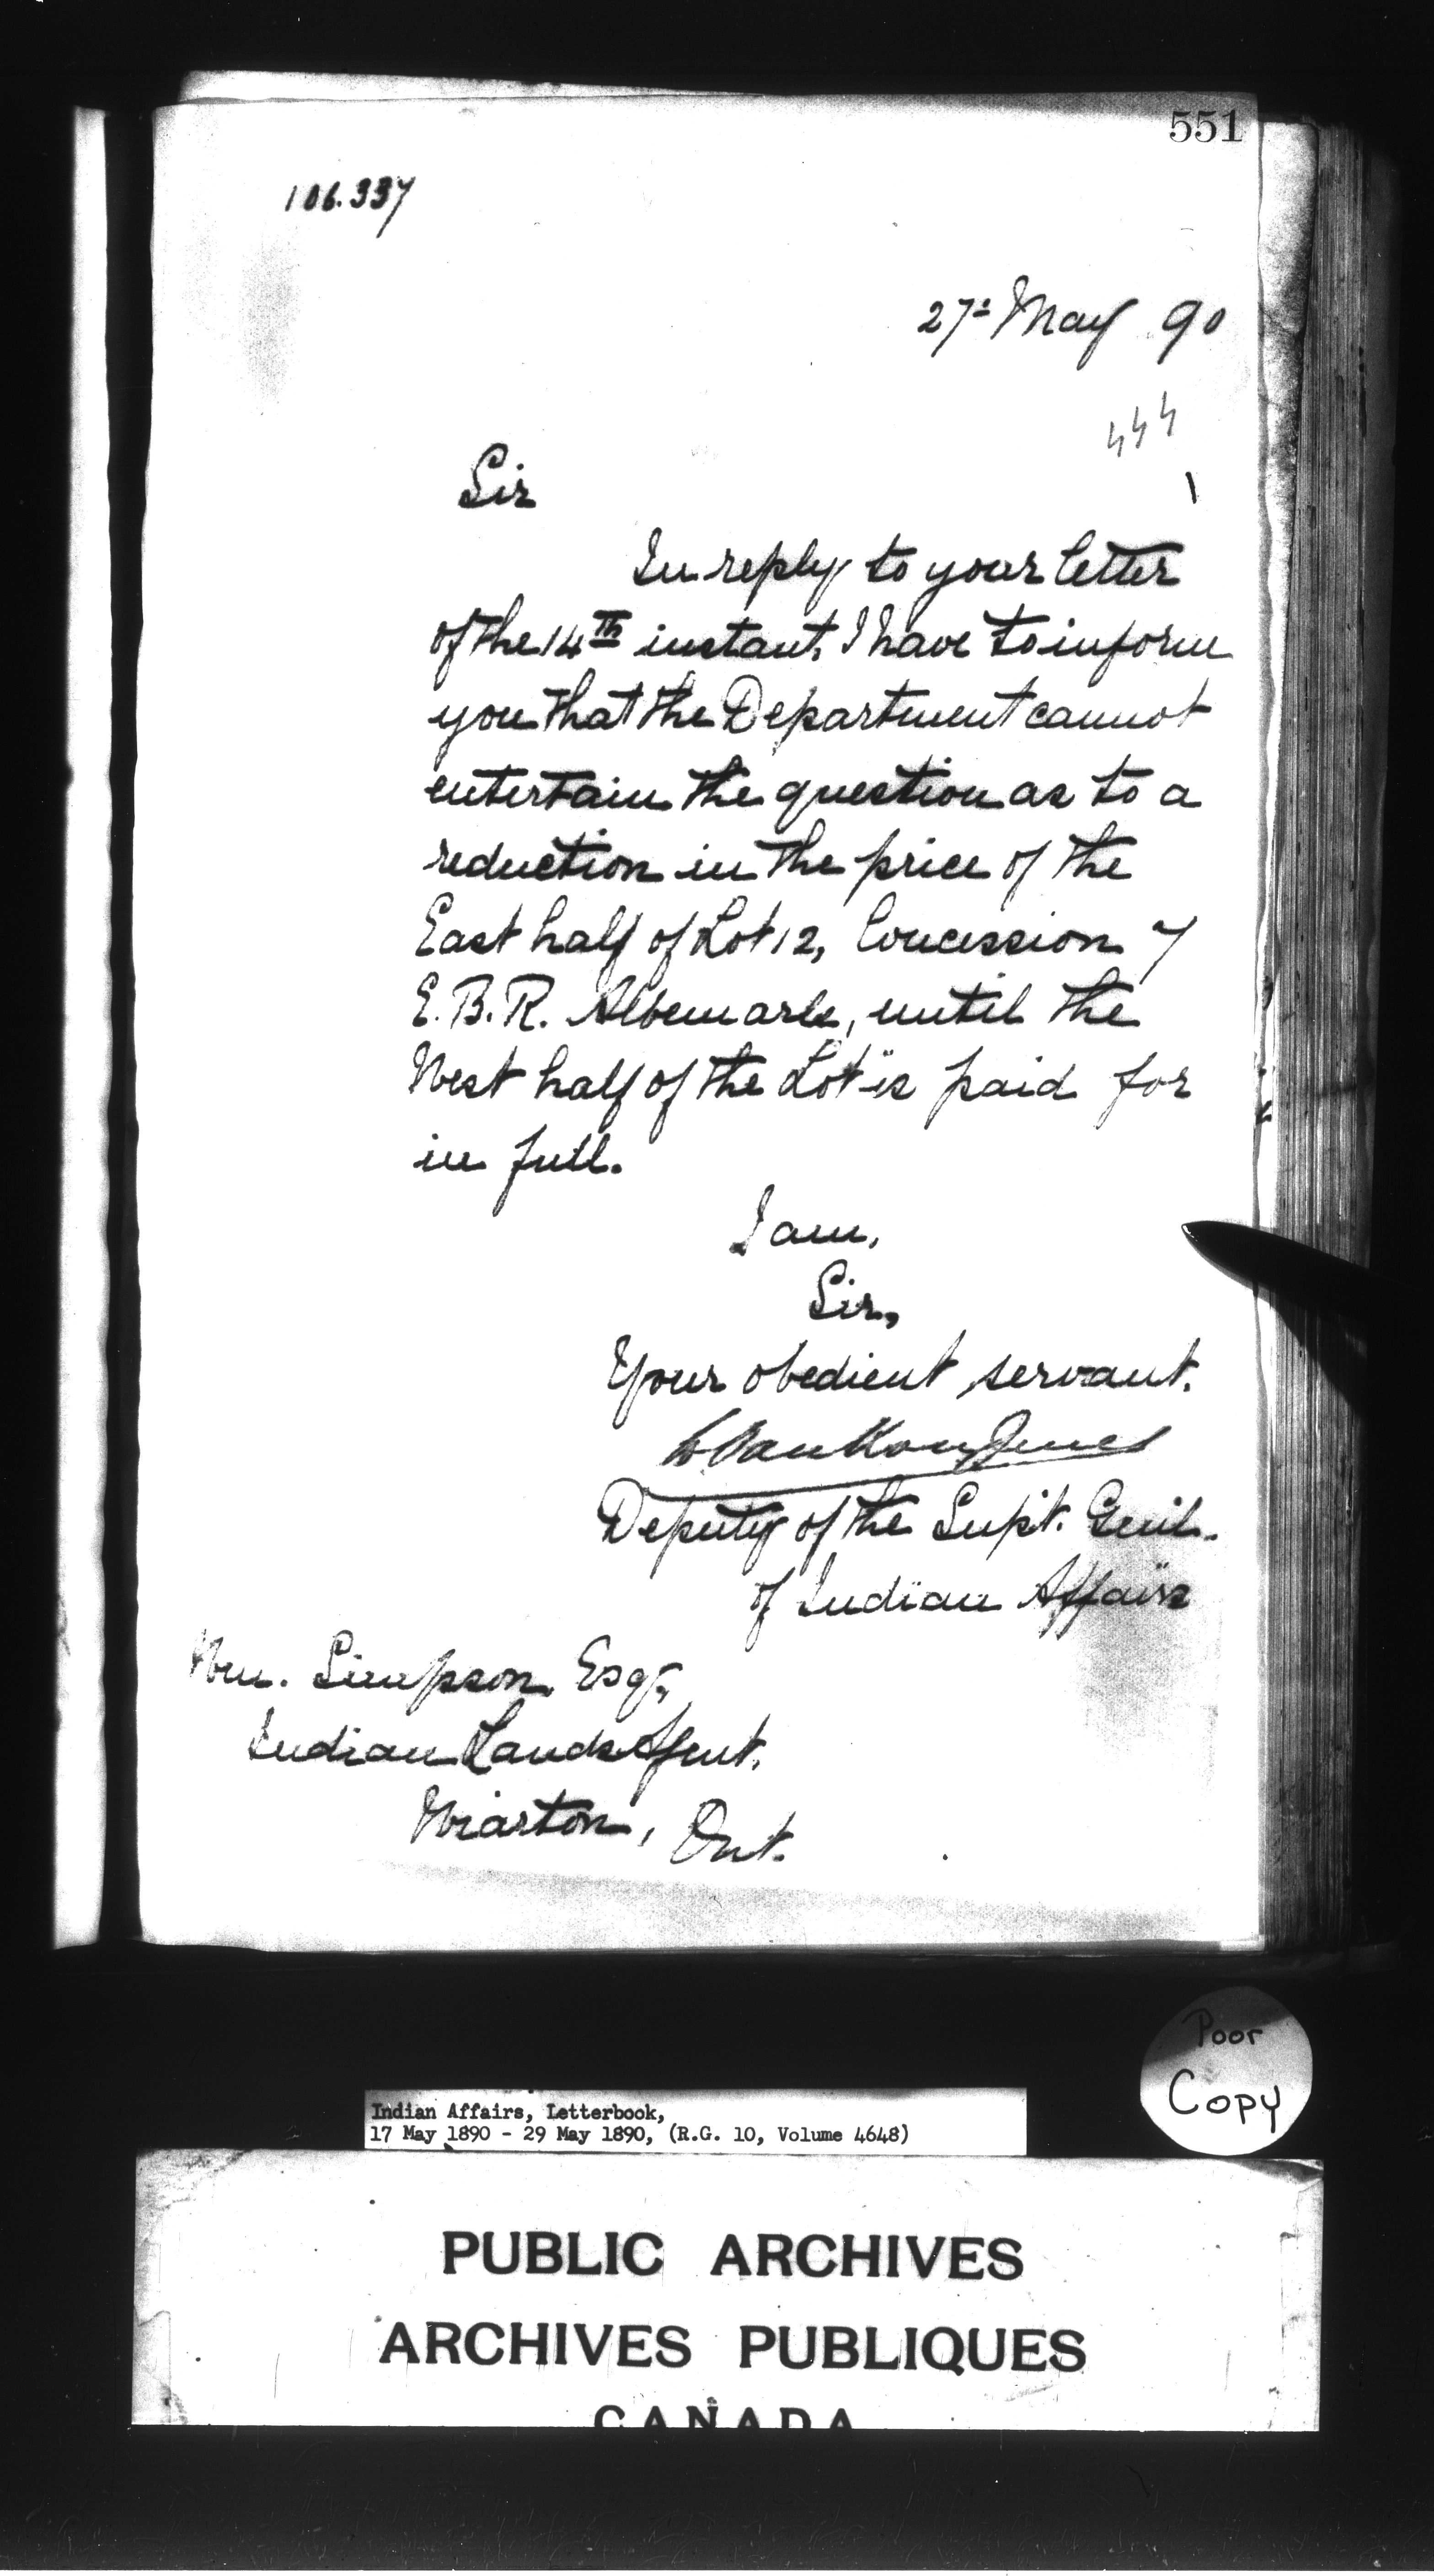 551
106.337
27th May 90
444
Sir
In reply to your letter
of the 14th instant, I have to inform
you that the Department cannot
entertain the question as to a
reduction in the price of the
East half of Lot 12, Concession 7
E.B.R. Albemarle, until the
West half of the Lot is paid for
in full.
I am,
Sir,
Your obedient servant.
L. Vankoughnet
Deputy of the Supt. Genl.
of Indian Affairs
Wm. Simpson, Esqr,
Indian Lands Agent.
Wiarton, Ont.
Poor
Copy
Indian Affairs, Letterbook,
17 May 1890 - 29 May 1890, (R.G. 10, Volume 4648)
PUBLIC ARCHIVES
ARCHIVES PUBLIQUES
CANADA